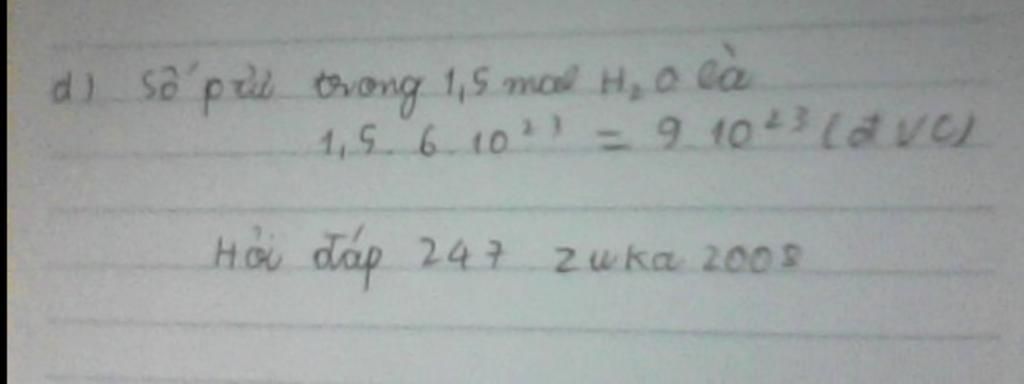 d) Số ptử trong 1,5 mol H₂O là
1,5 . 6 . 10²³ = 9 10²³ (đVC)
Hỏi đáp 247 zuka 2008